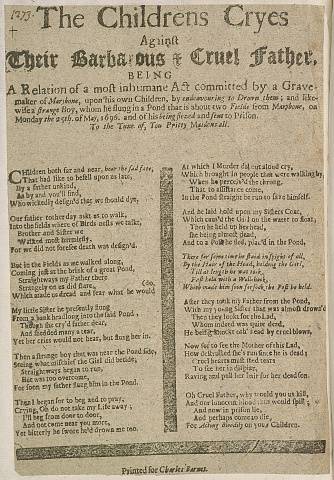 The Childrens Cryes
Against
Their Barbarous & Cruel Father,
BEING
A Relation of a most inhumane Act committed by a Grave-
maker of Marybone, upon his own Children, by endeavouring to Drown them; and like-
wise a strange Boy, whom he flung in a Pond that is about two Fields from Marybone, on
Monday the 25th. of May, 1696. and of his being seized and sent to Prison.
To the Tune of, Ten Pritty Maidens all.
Children both far and near, hear the sad fate,
That had like to befell upon us late,
By a father unkind,
As by and you'll find,
Who wickedly design'd that we should dye,
Our father to ther day ask us to walk,
Into the fields where of Birds nests we talkt,
Brother and Sister we
Walked most harmlessly,
For we did not foresee death was design'd.
But in the Fields as we walked along,
Coming just at the brink of a great Pond,
Straightways my Father there
Strangely on us did stare, (do.
Which made us dread and fear what he would
My little Sister he presently flung
From a bank headlong into the said Pond,
Though she cry'd father dear,
And shedded many a tear,
Yet her cries would not hear, but flung her in.
Then a strange boy that was near the Pond side,
Seeing what mischief the Girl did betide,
Straightways began to run,
But was too overcome,
For soon my father flung him in the Pond.
Then I began for to beg and to pray,
Crying, Oh do not take my Life away;
I'll beg from door to door,
And not come near you more,
Yet bitterly he swore he'd drown me too.
At which I Murder did out aloud cry,
Which brought in people that were walking by,
When he perceiv'd the throng,
That to assistance come,
In the Pond straight he run to save himself.
And he laid hold upon my Sisters Coat,
Which caus'd the Girl on the water to float,
Then he held up her head,
She being almost dead,
And to a Post he
There for some time he stood in sight of all,
By the side of the Head, holding the Girl,
Till at length he was took,
Which made him soon forsook the Post he held.
After they took my Father from the Pond,
With my young Sister that was almost drown'd
Then they looks for the Lad,
Whom indeed was quite dead,
He being knockt oth' head by cruel blown.
Now for to see the Mother of this Lad,
How distracted she's run since he is dead;
Cruel hearts must shed tears
To see her in despair,
Raving and pull her hair for her dead son.
Oh Cruel Father, why would you us kill,
And our innocent blood thus would spill;
And now in prison lie,
And perhaps come to die,
For Acting Bloodily on your Children.
Printed for Charles Barnet.